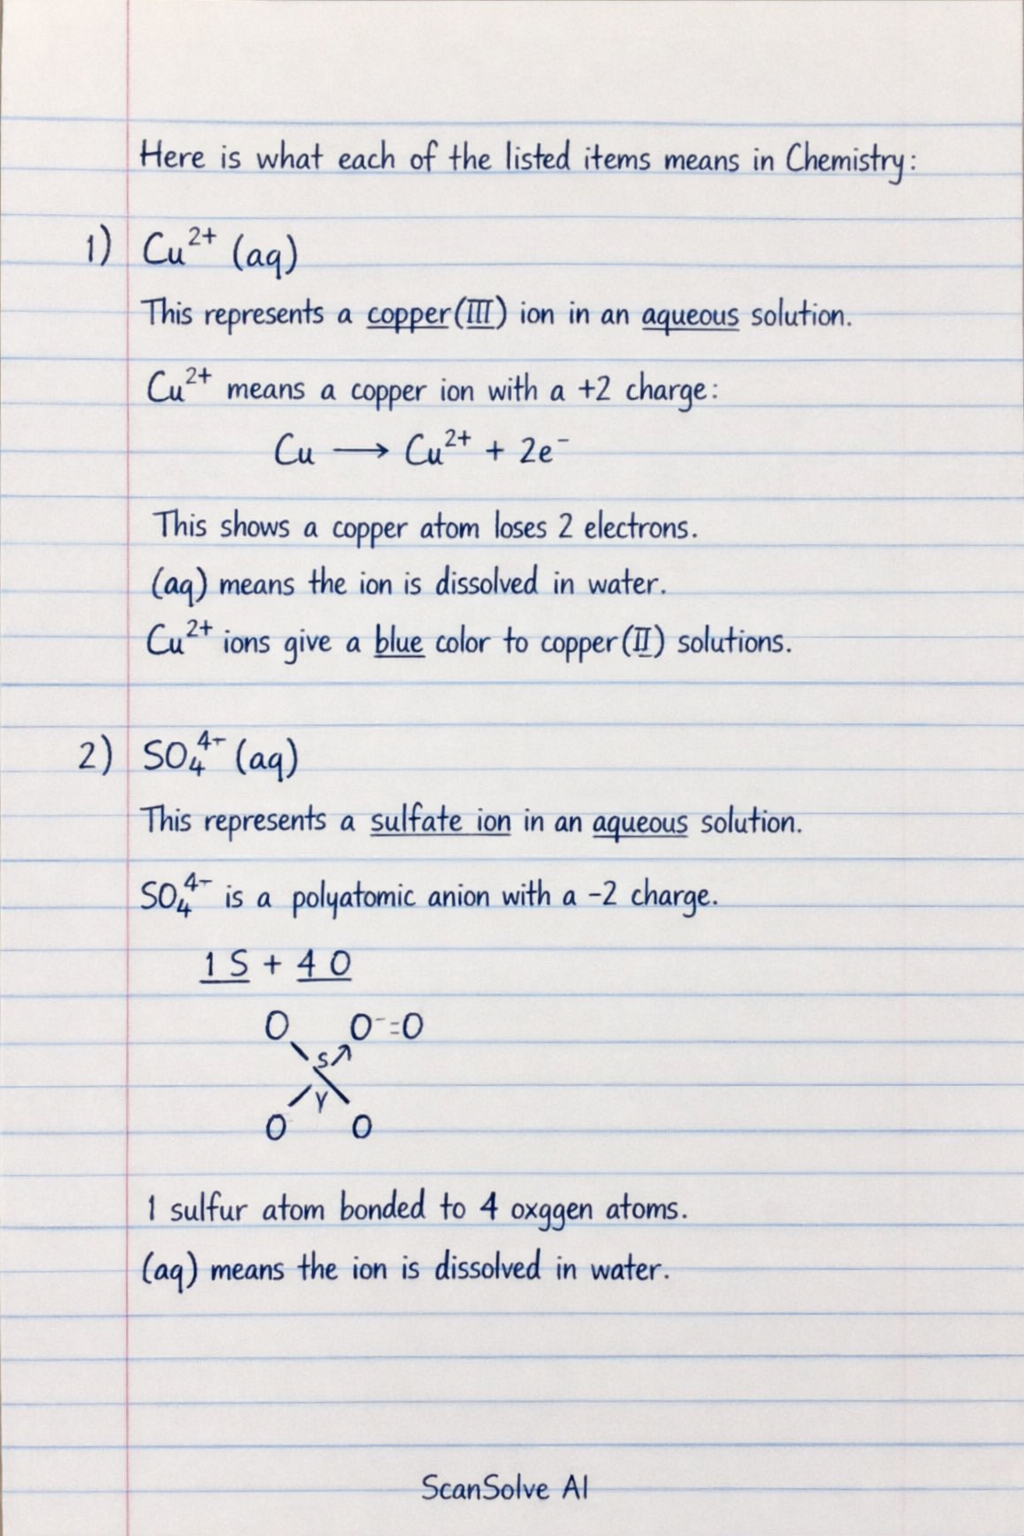 Here is what each of the listed items means in Chemistry:
1) Cu²⁺ (aq)
This represents a copper(III) ion in an aqueous solution.
Cu²⁺ means a copper ion with a +2 charge:
Cu ⟶ Cu²⁺ + 2e⁻
This shows a copper atom loses 2 electrons.
(aq) means the ion is dissolved in water.
Cu²⁺ ions give a blue color to copper(II) solutions.
2) SO₄⁴⁻ (aq)
This represents a sulfate ion in an aqueous solution.
SO₄⁴⁻ is a polyatomic anion with a -2 charge.
1 S + 4 O
O O⁻=O
S
Y
O O
1 sulfur atom bonded to 4 oxggen atoms.
(aq) means the ion is dissolved in water.
ScanSolve AI